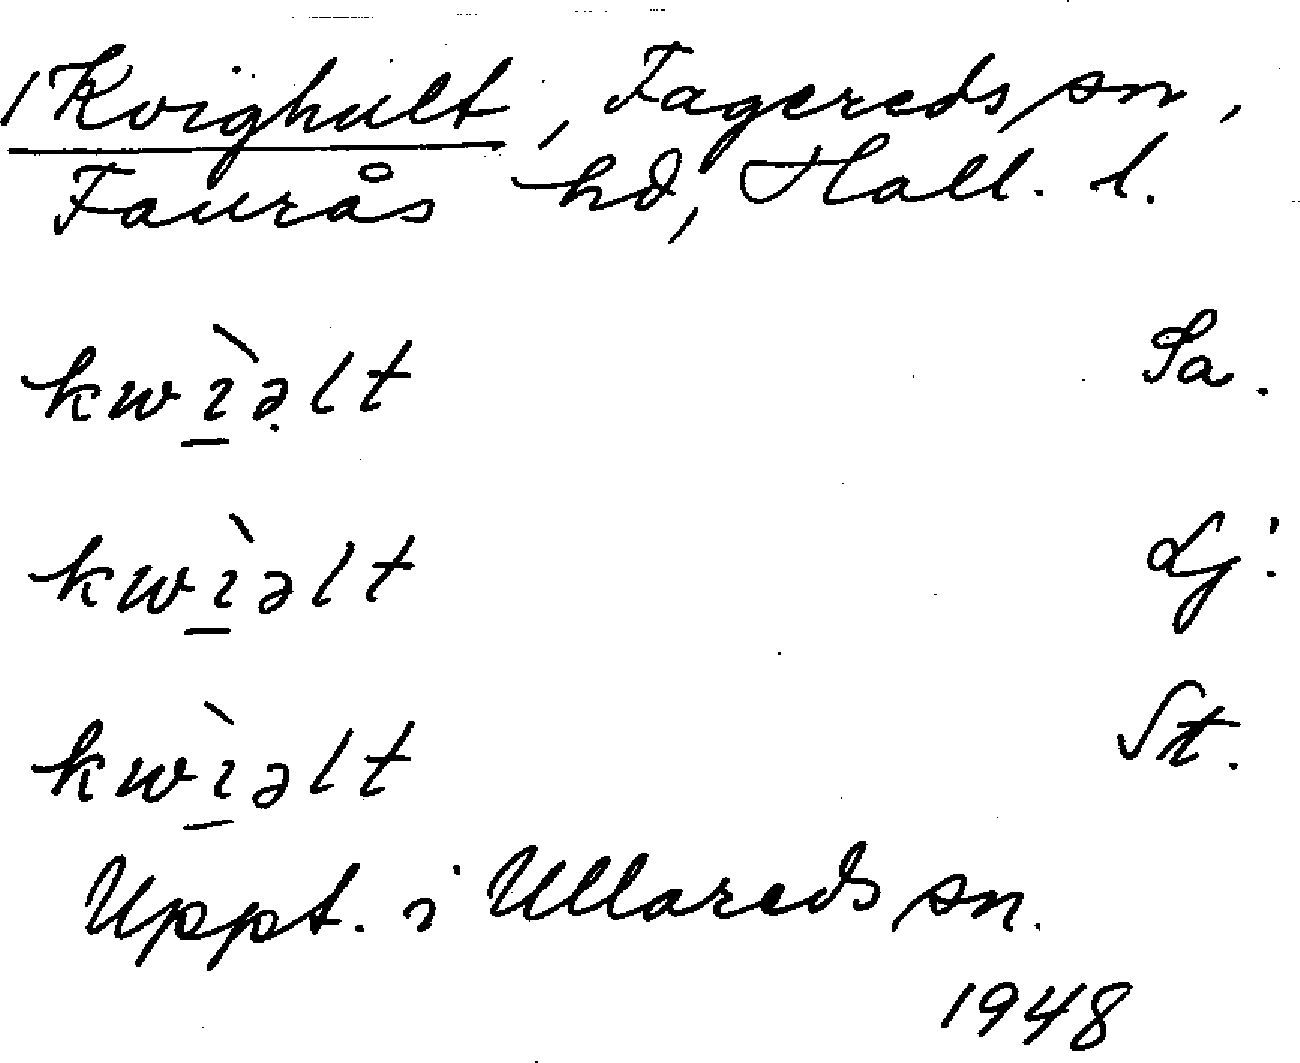 /Kvighult, Fagereds sn,
Faurås hd, Hall. l.
kwı̱̀ə̣lt Sa.
kwı̱̀əlt Lj.
kwı̱̀əlt St.
Uppt. i Ullareds sn.
1948